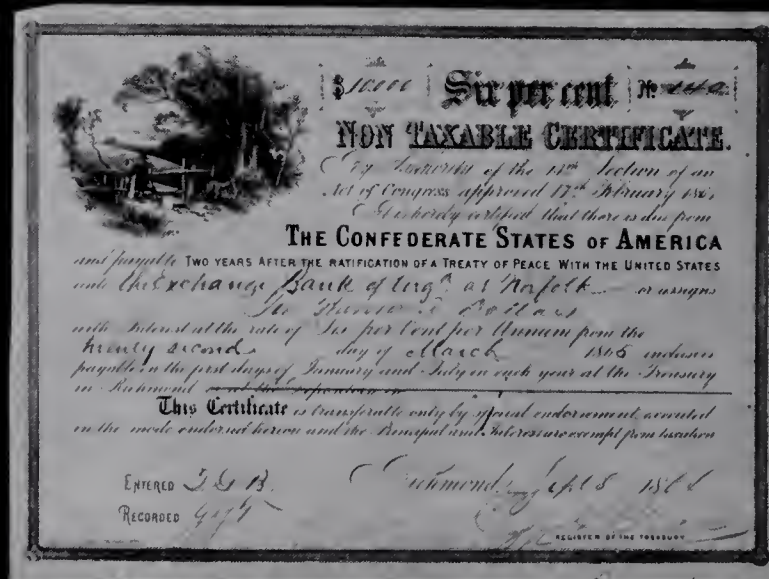 $10000 Six per cent No.
NON TAXABLE CERTIFICATE.
By Authority of the 14th Section of an
Act of Congress approved 17th February
It is hereby certified that there is due from
THE CONFEDERATE STATES OF AMERICA
and payable TWO YEARS AFTER THE RATIFICATION OF A TREATY OF PEACE WITH THE UNITED STATES
unto the Exchange Bank of at Norfolk or assigns
Dollars
with Interest at the rate of Six per Cent per Annum from the
day of March 1865 inclusive
payable on the first days of January and July in each year at the Treasury
in Richmond
This Certificate is transferable only by special endorsement executed
in the mode endorsed hereon and the Principal and Interest are exempt from taxation
ENTERED
Richmond
RECORDED
REGISTER OF THE TREASURY